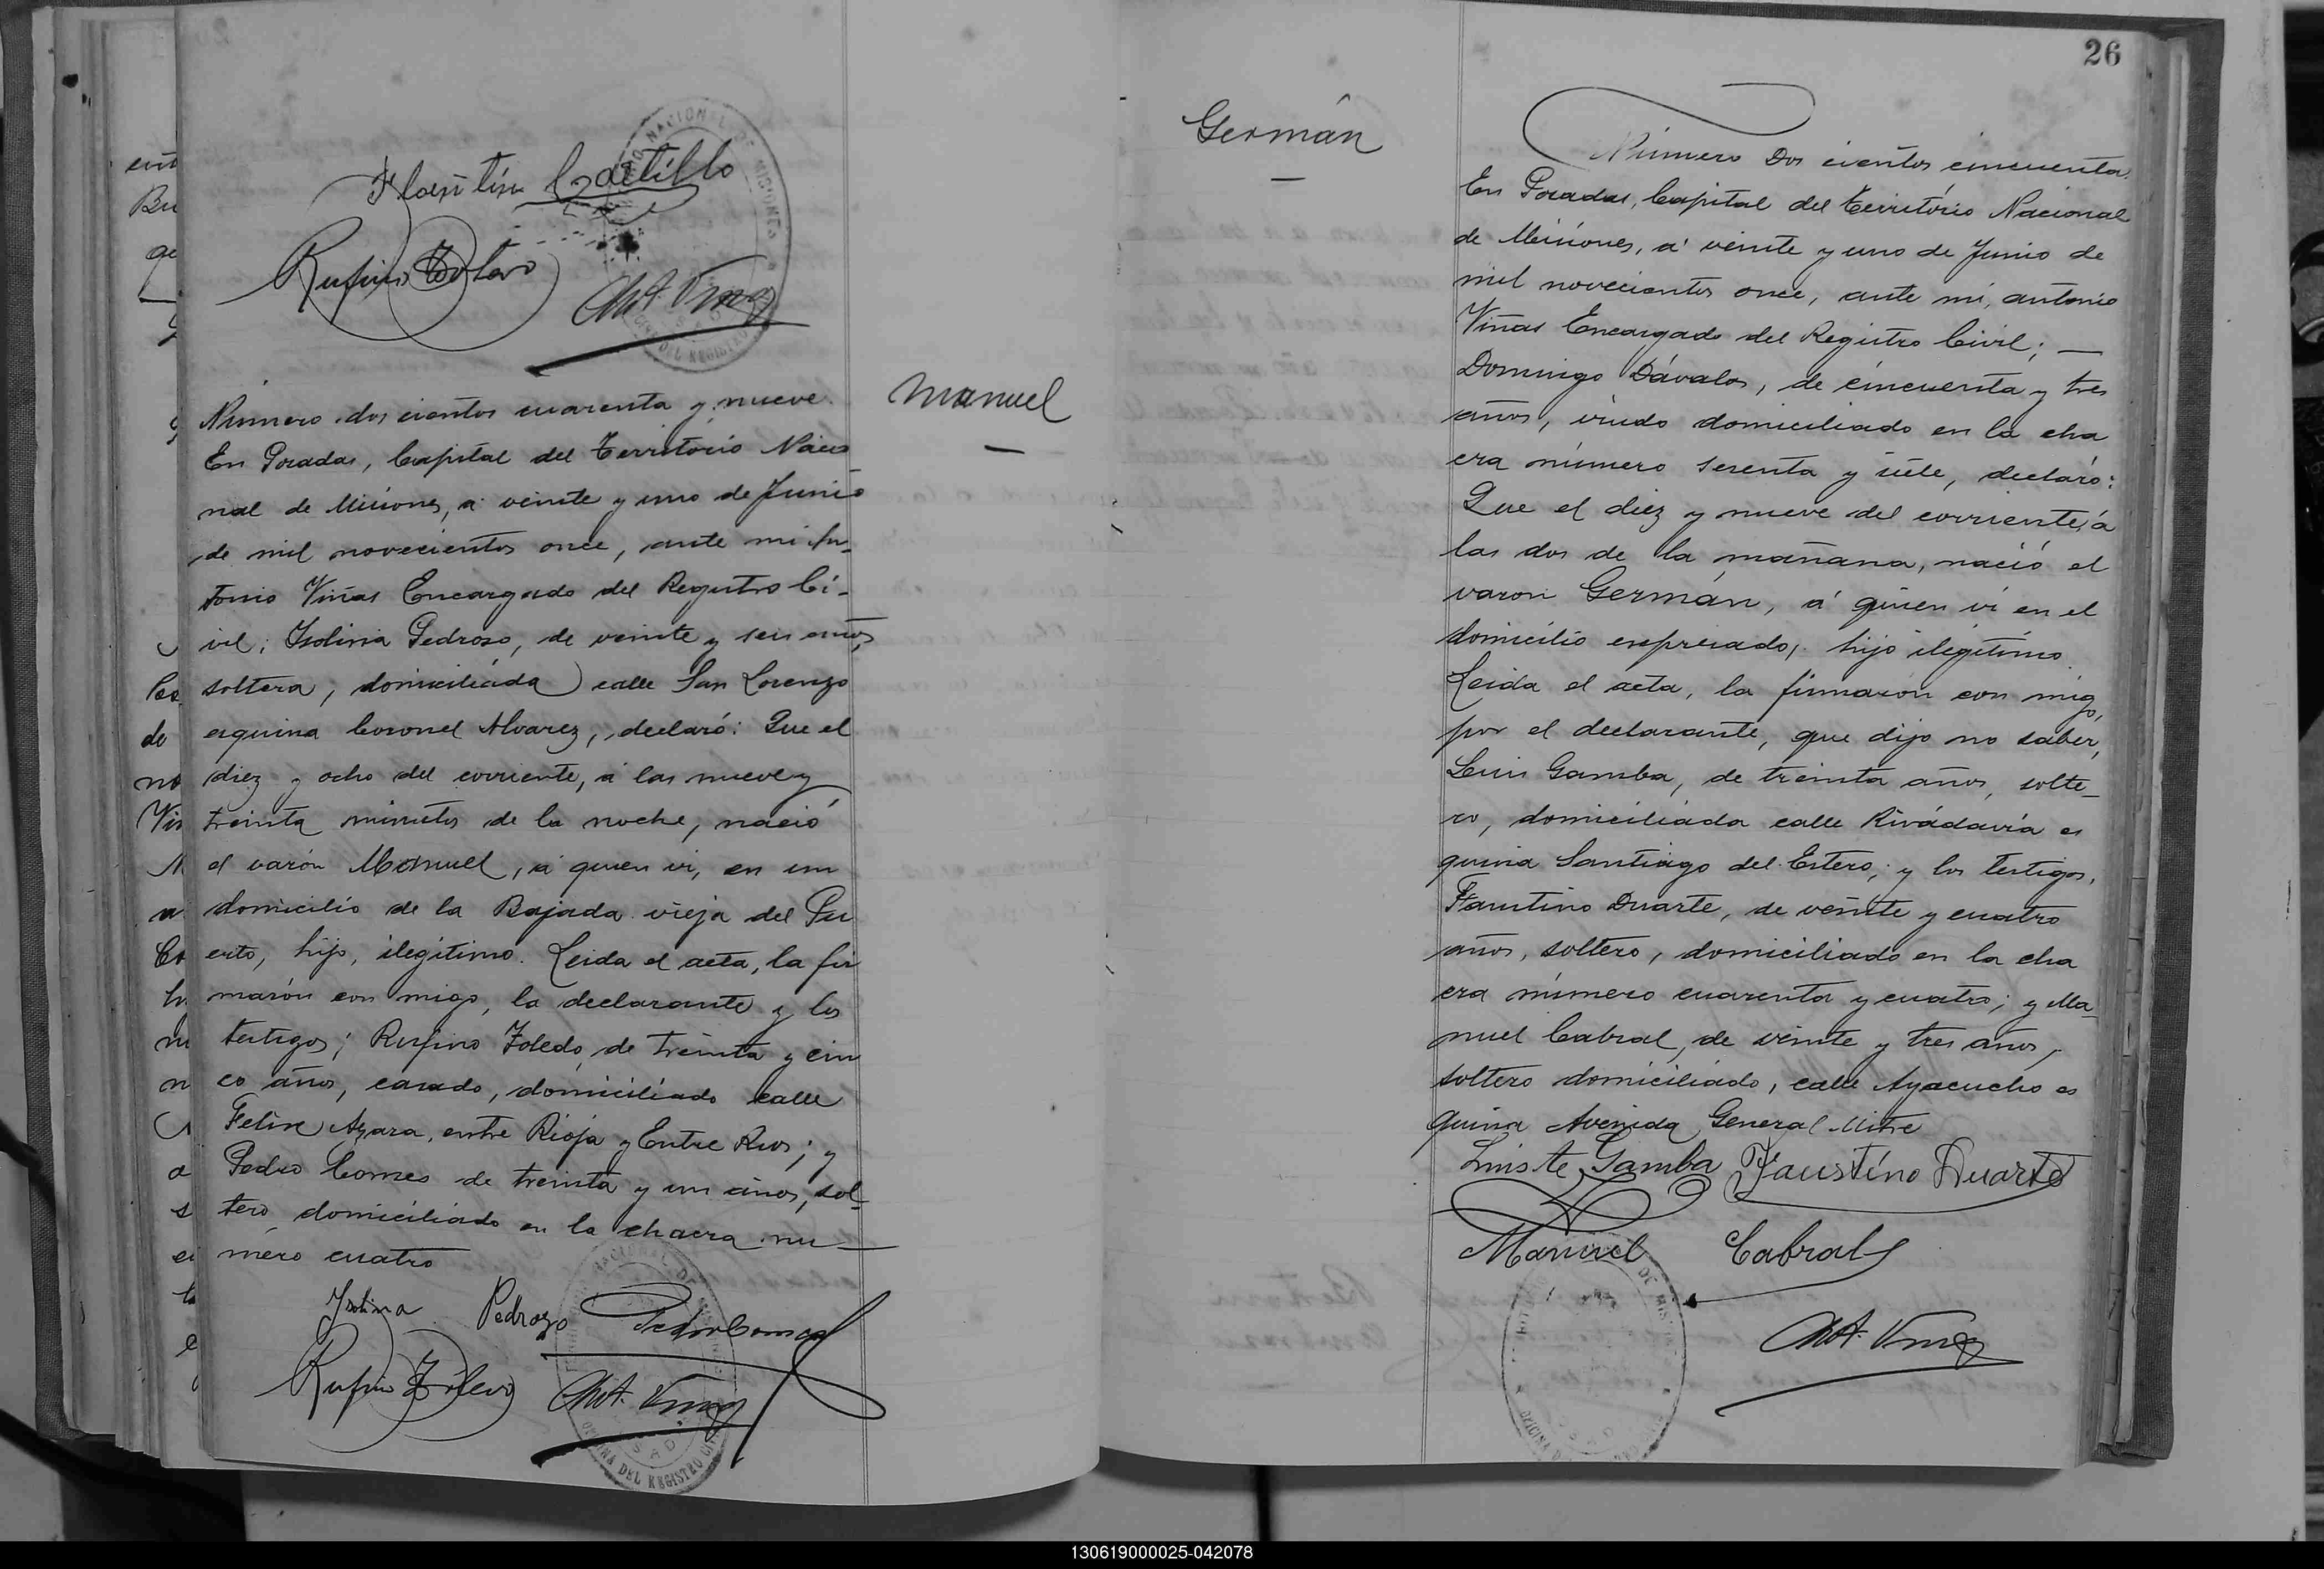 Florentín Castillo
Rufino Toledo
Ant. Viñas
Número dos cientos cuarenta y nueve.
Manuel
En Posadas, Capital del Territorio Nacio
nal de Misiones, á veinte y uno de Junio
de mil novecientos once, ante mi An-
tonio Viñas Encargado del Registro Ci-
vil; Isolina Pedroso, de veinte y seis años,
soltera, domiciliada calle San Lorenzo
esquina Coronel Alvarez, declaró: Que el
diez y ocho del corriente, á las nueve y
treinta minutos de la noche, nació
el varón Manuel, á quien vi, en un
domicilio de la Bajada vieja del Pu
erto, hijo, ilegítimo. Leida el acta, la fir
marón con migo, la declarante y los
testigos; Rufino Toledo, de treinta y cin
co años, casado, domiciliado calle
Felix Azara, entre Rioja y Entre Rios; y
Pedro Comes de treinta y un años, sol-
tero domiciliado en la chacra nu—
méro cuatro
Isolina Pedrozo Pedro Comes
Rufino Toledo Ant. Viñas
OFICINA DEL REGISTRO CIVIL
26
Germán
Número Dos cientos cincuenta.
En Posadas, Capital del Território Nacional
de Misiones, á veinte y uno de Junio de
mil novecientos once, ante mi, antonio
Viñas Encargado del Registro Civil; —
Domingo Dávalos, de cincuenta y tres
años, viudo domiciliado en la cha
cra número sesenta y siete, declaró:
Que el diez y nueve del corriente, á
las dos de la mañana, nació el
varon Germán, á quien vi en el
domicilio expresado, hijo ilegítimo.
Leida el acta, la firmaron con migo,
por el declarante, que dijo no saber,
Luis Gamba, de treinta años, solte-
ro, domiciliada calle Rivádavia es
quina Santiago del Estero; y los testigos,
Faustino Duarte, de veinte y cuatro
años, soltero, domiciliado en la cha
cra número cuarenta y cuatro; y Ma-
nuel Cabral, de veinte y tres años,
soltero domiciliado, calle Ayacucho es
quina Avenida General Mitre
Luis Gamba Faustíno Duarte
Manuel Cabral
Ant. Viñas
130619000025-042078